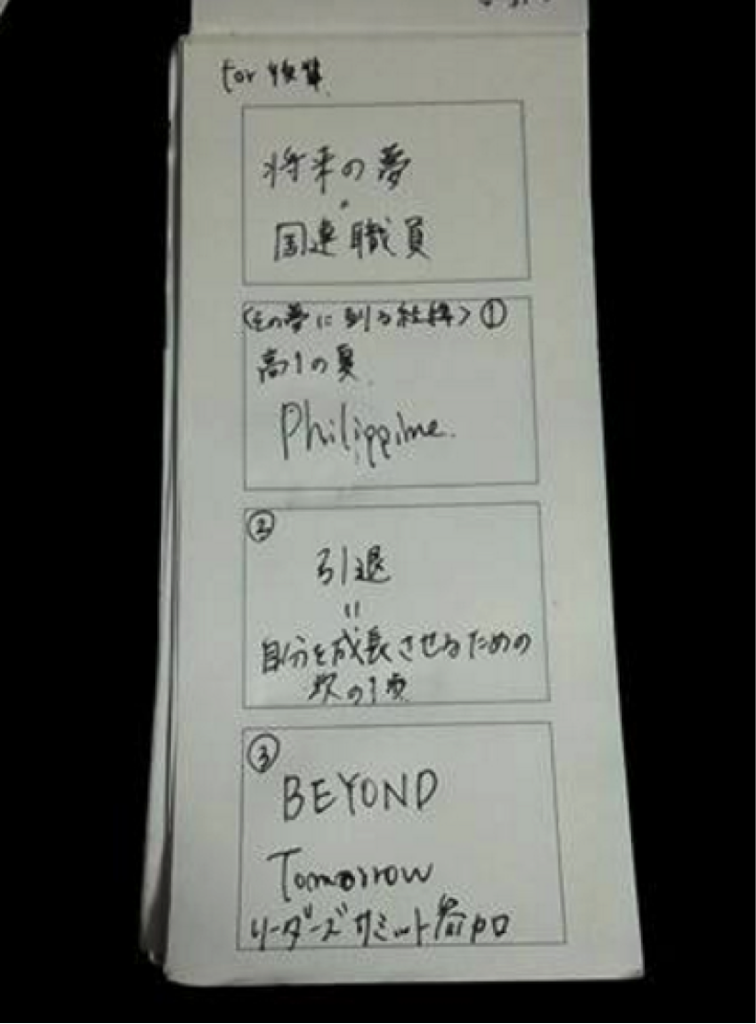 for
将来の夢
・
国連職員
〈その夢に到る経緯〉①
高1の夏
Philippine.
②
引退
〃
自分を成長させるための
次の1頁
③
BEYOND
Tomorrow
リーダーズサミット参加